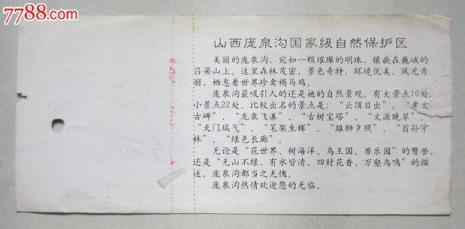 7788.com
山西庞泉沟国家级自然保护区
美丽的庞泉沟，宛如一颗璀璨的明珠，镶嵌在巍峨的
吕梁山上。这里森林茂密，景色奇特，环境优美，风光秀
丽，栖息着世界珍禽褐马鸡。
庞泉沟最吸引人的还是她的自然景观，有大景点10处，
小景点22处，比较出名的景点是：“云顶日出”、“孝文
古碑”、“龙泉飞瀑”、“古树宝塔”、“文源晚翠”、
“天门瑞气”、“笔架生辉”、“雄狮夕照”、“百孙守
林”、“绿色长廊”
无论是“花世界、树海洋、鸟王国、兽乐园”的赞誉，
还是“无山不绿，有水皆清，四时花香，万壑鸟鸣”的描
述，庞泉沟都当之无愧。
庞泉沟热情欢迎您的光临。